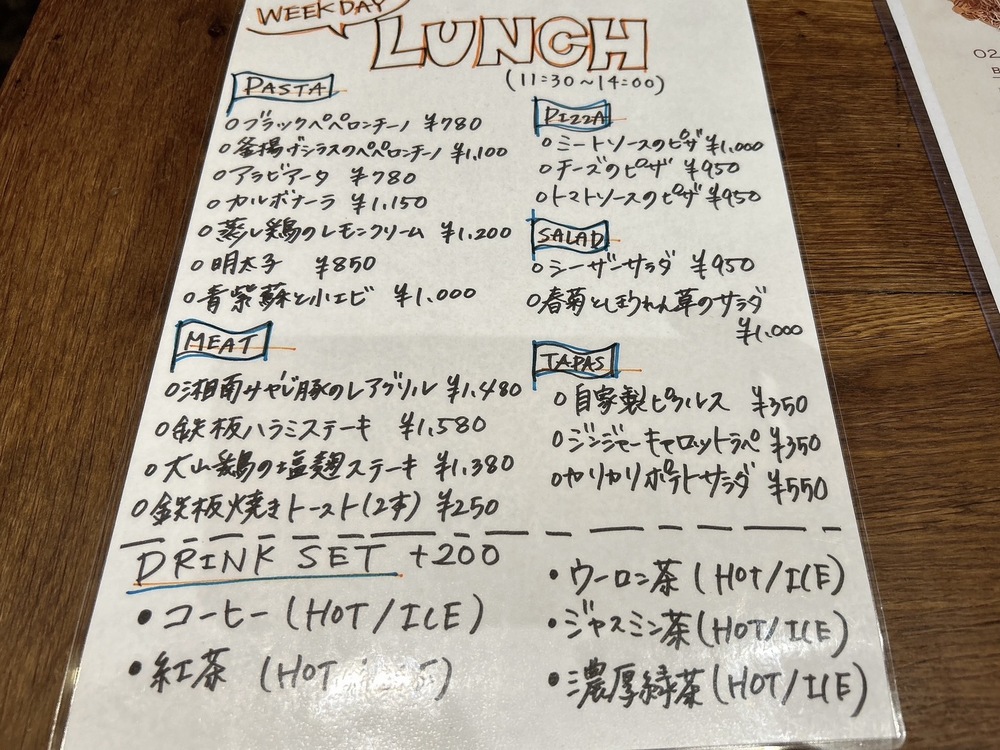 WEEKDAY
LUNCH
(11:30~14:00)
PASTA
○ブラックペペロンチーノ ¥780
○釜揚げシラスのペペロンチーノ ¥1,100
○アラビアータ ¥780
○カルボナーラ ¥1,150
○蒸し鶏のレモンクリーム ¥1,200
○明太子 ¥850
○青紫蘇と小エビ ¥1,000
MEAT
○湘南みやじ豚のレアグリル ¥1,480
○鉄板ハラミステーキ ¥1,580
○大山鶏の塩麹ステーキ ¥1,380
○鉄板焼きトースト(2本) ¥250
PIZZA
○ミートソースのピザ ¥1,000
○チーズのピザ ¥950
○トマトソースのピザ ¥950
SALAD
○シーザーサラダ ¥950
○春菊とほうれん草のサラダ
¥1,000
TAPAS
○自家製ピクルス ¥350
○ジンジャーキャロットラペ ¥350
○カリカリポテトサラダ ¥550
DRINK SET +200
•コーヒー(HOT/ICE)
•紅茶 (HOT
•ウーロン茶(HOT/ICE)
•ジャスミン茶(HOT/ICE)
•濃厚緑茶(HOT/ICE)
02